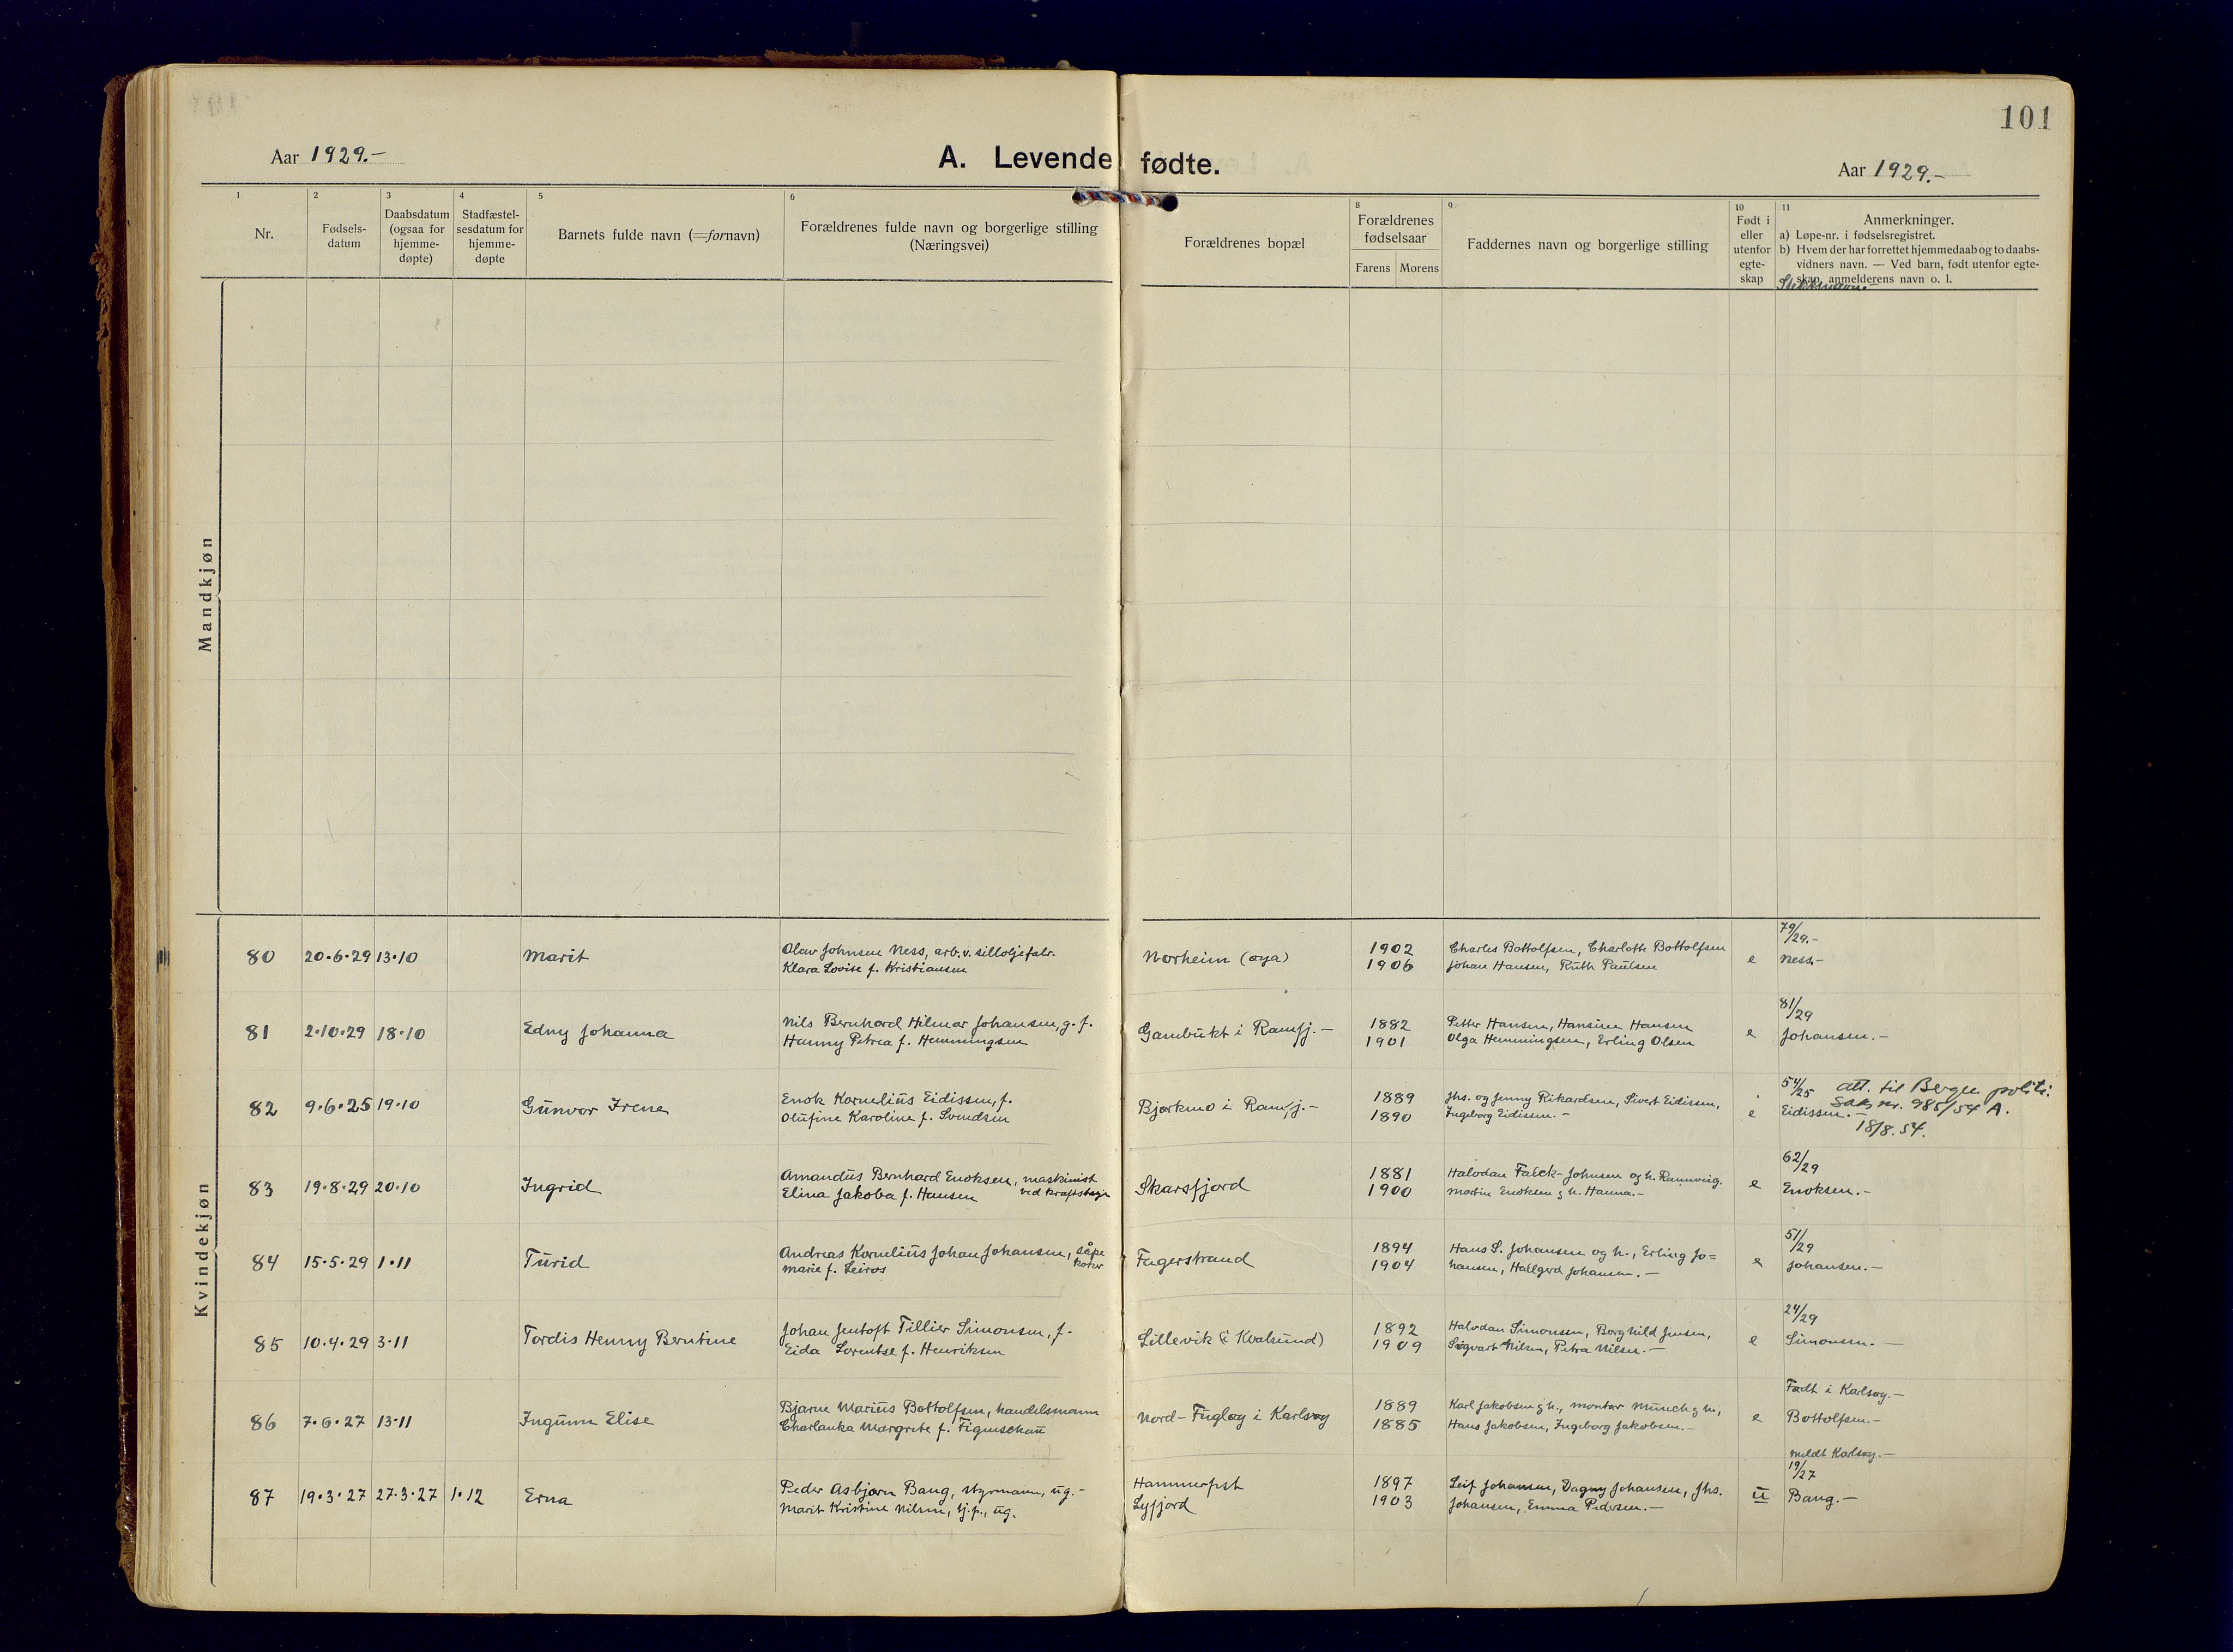 101
Aar 1929.-
A. Levende fødte.
Aar 1929.-
1 2 3 4 5 6 8 9 10 11
Nr.
Fødsels-
datum
Daabsdatum
(ogsaa for
hjemme-
døpte)
Stadfæstel-
sesdatum for
hjemme-
døpte
Barnets fulde navn (=fornavn)
Forældrenes fulde navn og borgerlige stilling
(Næringsvei)
Forældrenes bopæl
Forældrenes
fødselsaar
Farens Morens
Faddernes navn og borgerlige stilling
Født i
eller
utenfor
egte-
skap
Anmerkninger.
a) Løpe-nr. i fødselsregistret.
b) Hvem der har forrettet hjemmedaab og to daabs-
vidners navn. — Ved barn, født utenfor egte-
skap, anmelderens navn o. l.
Slektsnavn.-
Mandkjøn
Kvindekjøn
80 20.6.29 13.10 Marit
Olav Johnsen Ness, arb. v. silloljefabr.
Klara Lovise f. Kristiansen
Norheim (øya)
1902
1906
Charles Bottolfsen, Charlotte Bottolfsen
Johan Hansen, Ruth Paulsen
e
79/29.-
Ness.-
81 2.10.29 18.10 Edny Johanna
Nils Bernhard Hilmar Johansen, g. f.
Hanny Petrea f. Hemmingsen
Gambukt i Ramfj.-
1882
1901
Petter Hansen, Hansine Hansen
Olga Hemmingsen, Erling Olsen
e
81/29
Johansen.-
82 9.6.25 19.10 Gunvor Irene
Enok Kornelius Eidissen, f.
Olufine Karoline f. Svendsen
Bjørkmo i Ramfj.-
1889
1890
Jhs. og Jenny Rikardsen, Sivert Eidissen,
Ingeborg Eidissen.-
e
54/25
Eidissen.-
att. til Bergen politi.
Sak nr. 985/54 A.
18/8. 54.
83 19.8.29 20.10 Ingrid
Amandus Bernhard Enoksen, maskinist
Elina Jakoba f. Hansen ved kraftstasjn
Skarsfjord
1881
1900
Halvdan Falck-Johnsen og h. Rannveig.
Martin Enoksen g h. Hanna.-
e
62/29
Enoksen.-
84 15.5.29 1.11 Turid
Andreas Kornelius Johan Johansen, såpe
Marie f. Leiros koker
Fagerstrand
1894
1904
Hans S. Johansen og h., Erling Jo=
hansen, Hallgerd Johansen.-
e
51/29
Johansen.-
85 10.4.29 3.11 Tordis Henny Berntine
Johan Jentoft Tillier Simonsen, f.
Eida Lorentse f. Henriksen
Lillevik (i Kvalsund)
1892
1909
Halvdan Simonsen, Borghild Jensen,
Sigvart Nilsen, Petra Nilsen.-
e
24/29
Simonsen.-
86 7.6.27 13.11 Ingunn Elise
Bjarne Marius Bottolfsen, handelsmann
Charlanka Margrete f. Figenschau
Nord-Fugløy i Karlsøy
1889
1885
Karl Jakobsen g h., montør Munch g h.,
Hans Jakobsen, Ingeborg Jakobsen.-
e
Født i Karlsøy.-
Bottolfsen.-
87 19.3.27 27.3.27 1.12 Erna
Peder Asbjørn Bang, styrmann, ug.-
Marit Kristine Nilsen, tj.p., ug.
Hammerfest
Lyfjord
1897
1903
Leif Johansen, Dagny Johansen, Jhs.
Johansen, Emma Pedersen.-
u
meldt Karlsøy.-
19/27
Bang.-